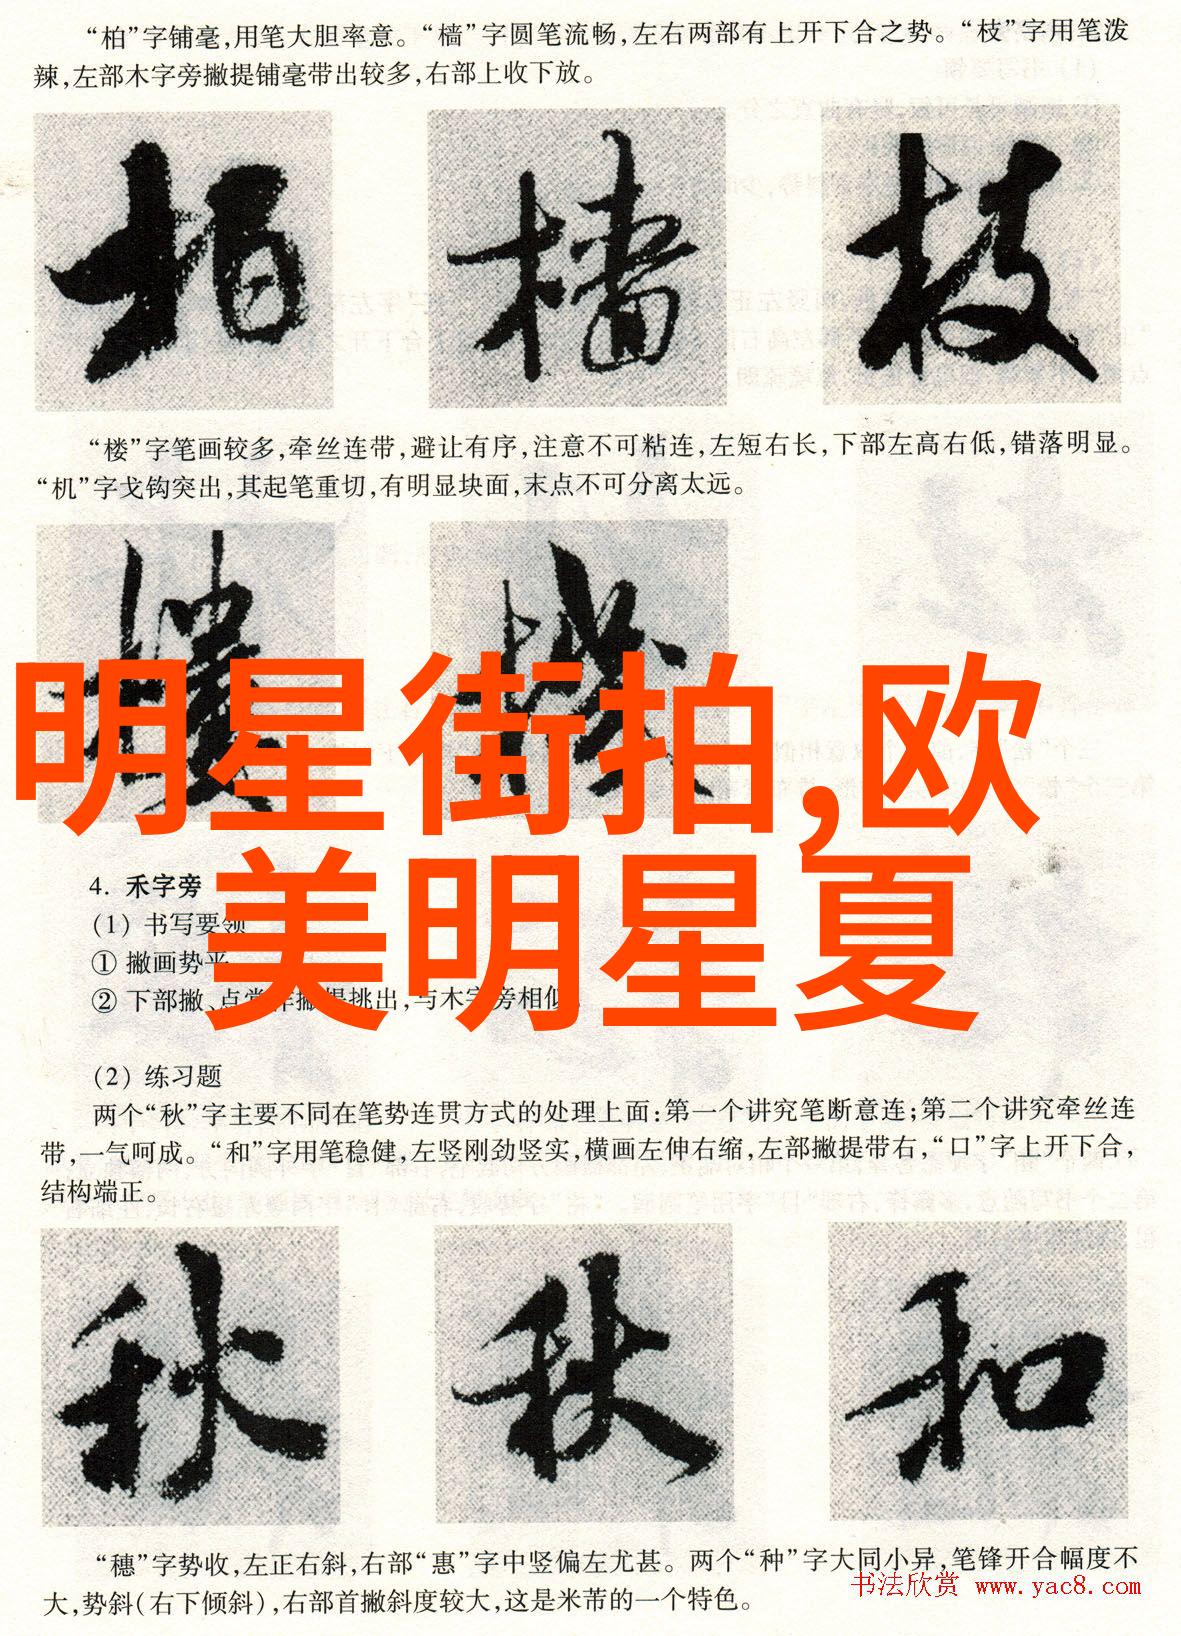 “柏”字铺毫,用笔大胆率意。“樯”字圆笔流畅,左右两部有上开下合之势。“枝”字用笔泼
辣,左部木字旁撇提铺毫带出较多,右部上收下放。
柏 樯 枝
“楼”字笔画较多,牵丝连带,避让有序,注意不可粘连,左短右长,下部左高右低,错落明显。
“机”字戈钩突出,其起笔重切,有明显块面,末点不可分离太远。
樓 機
明星街拍,欧
美明星夏
4. 禾字旁
(1) 书写要领
① 撇画势平
② 下部撇、点常作撇提挑出,与木字旁相似。
(2) 练习题
两个“秋”字主要不同在笔势连贯方式的处理上面:第一个讲究笔断意连;第二个讲究牵丝连
带,一气呵成。“和”字用笔稳健,左竖刚劲竖实,横画左伸右缩,左部撇提带右,“口”字上开下合,
结构端正。
秋 秋 和
“穗”字势收,左正右斜,右部“惠”字中竖偏左尤甚。两个“种”字大同小异,笔锋开合幅度不
大,势斜(右下倾斜),右部首撇斜度较大,这是米芾的一个特色。
书法欣赏 www.yac8.com